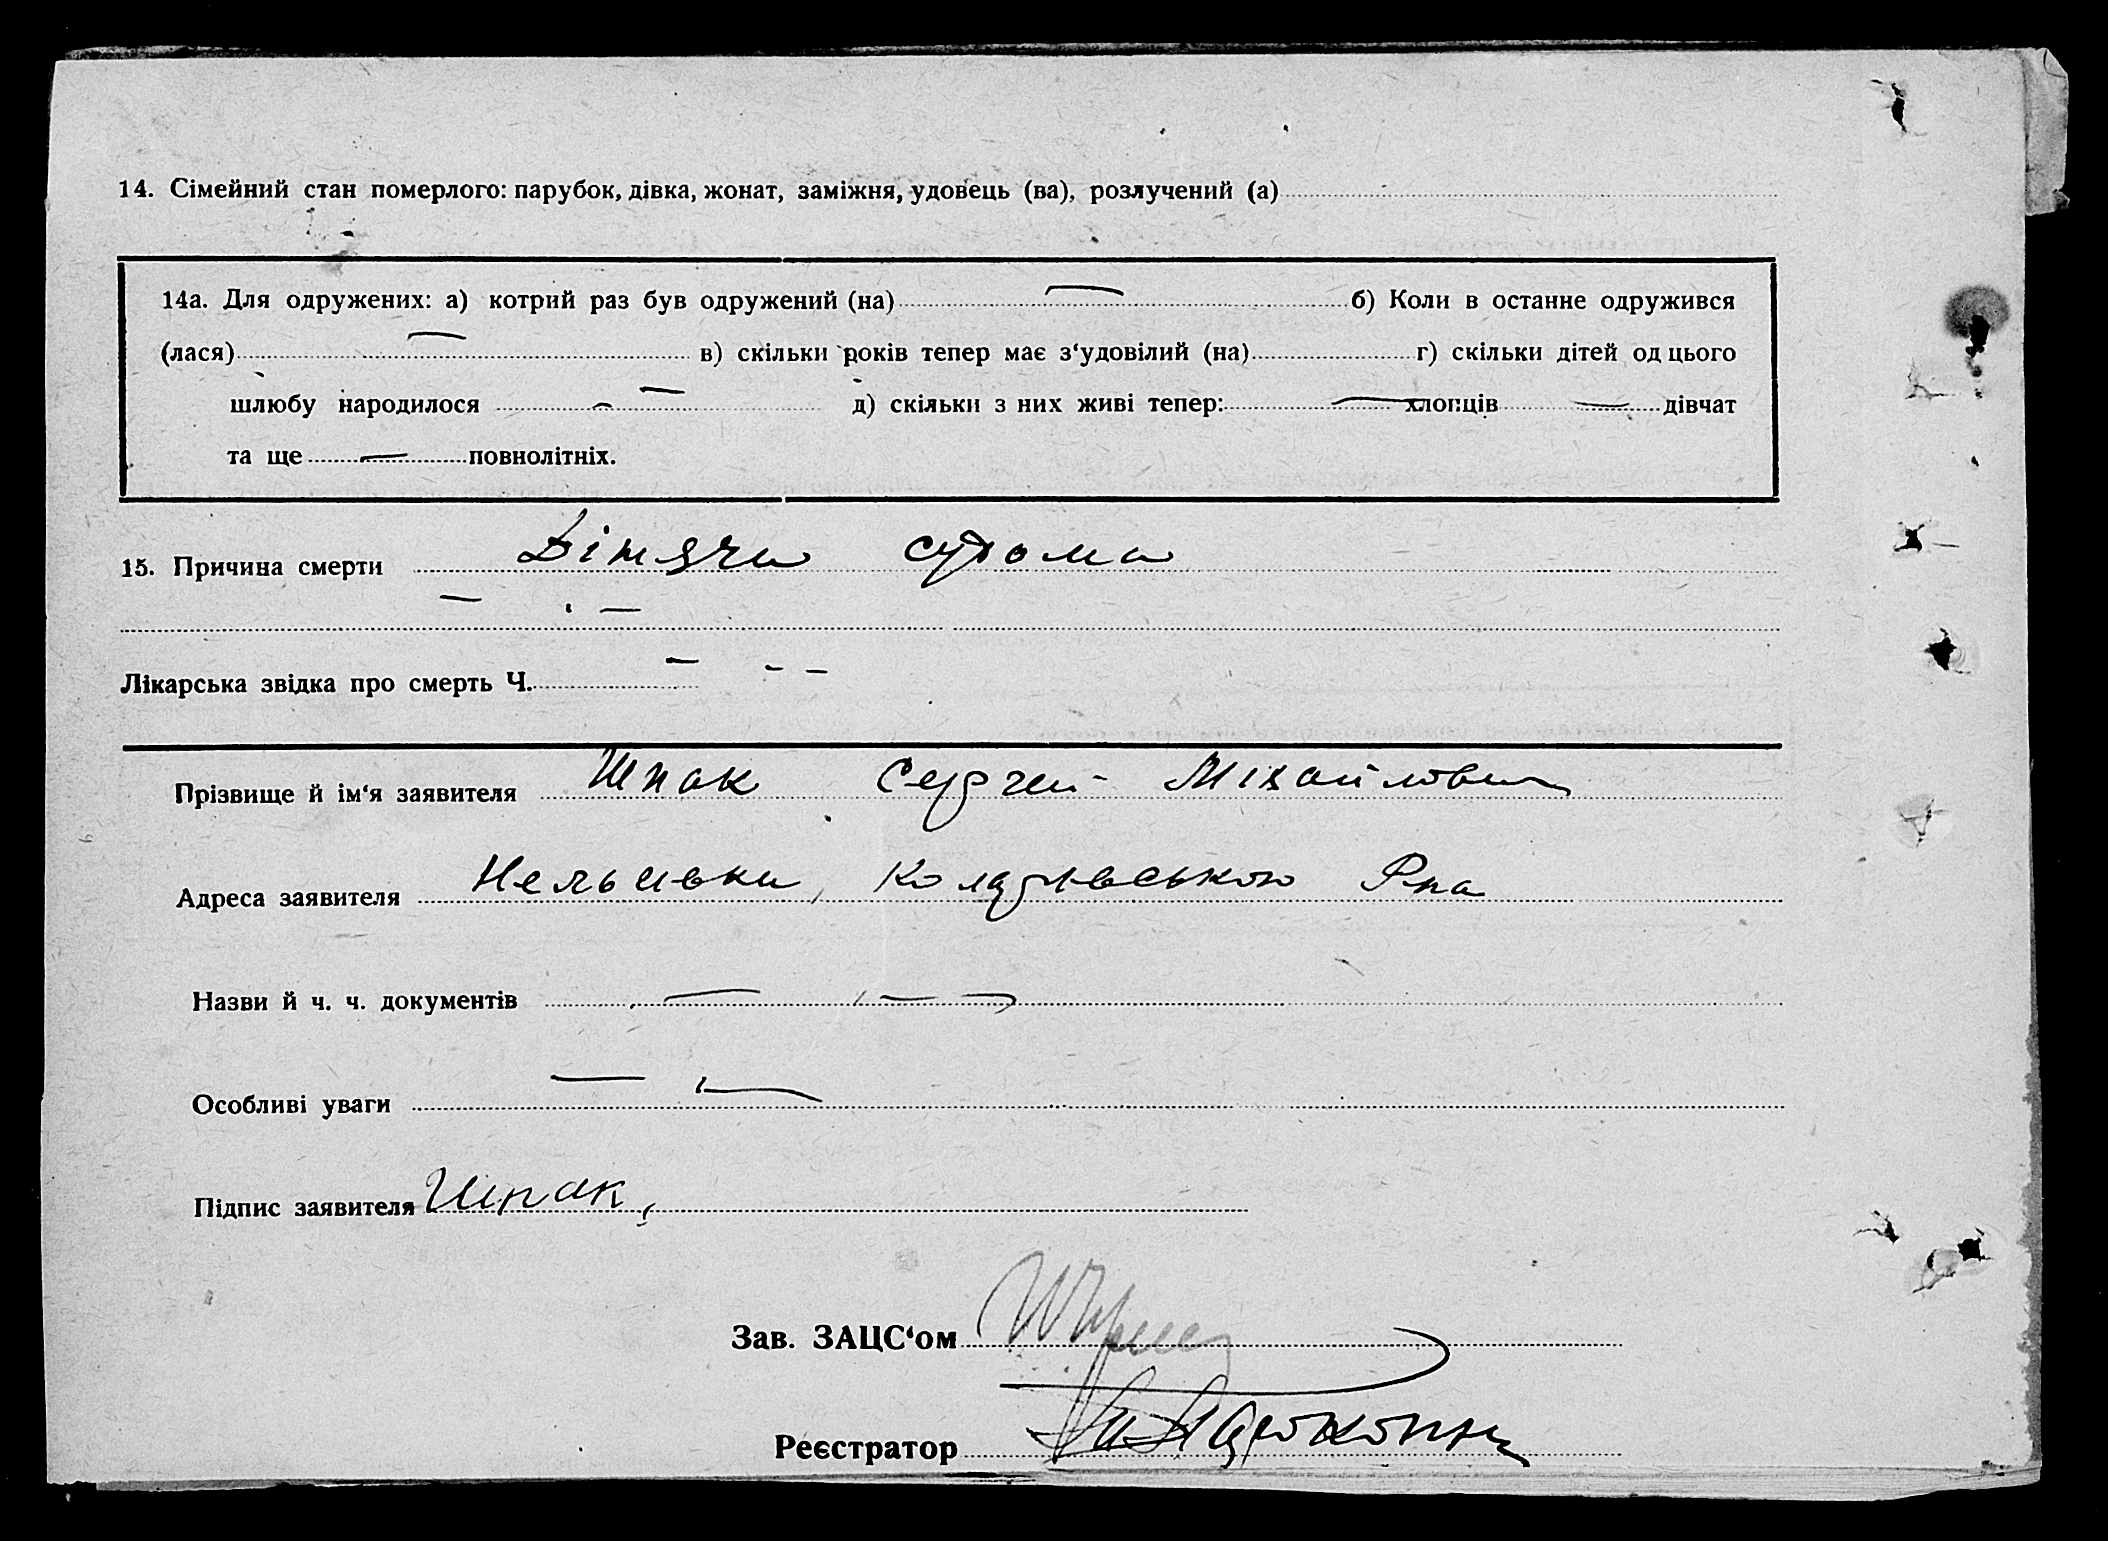 14. Сімейний стан померлого: парубок, дівка, жонат, заміжня, удовець (ва), розлучений (а)
14а. Для одружених: а) котрий раз був одружений (на) — б) Коли в останнє одружився
(лася) — в) скільки років тепер має з‘удовілий (на) г) скільки дітей од цього
шлюбу народилося — д) скільки з них живі тепер: — хлопців — дівчат
та ще — повнолітніх.
15. Причина смерти Дітяча судома
— —
Лікарська звідка про смерть Ч. — - –
Прізвище й ім‘я заявителя Шпак Сергей Міхайлович
Адреса заявителя
Назви й ч. ч. документів — — —
Особливі уваги — —
Підпис заявителя Шпак,
Зав. ЗАЦС‘ом
Реєстратор